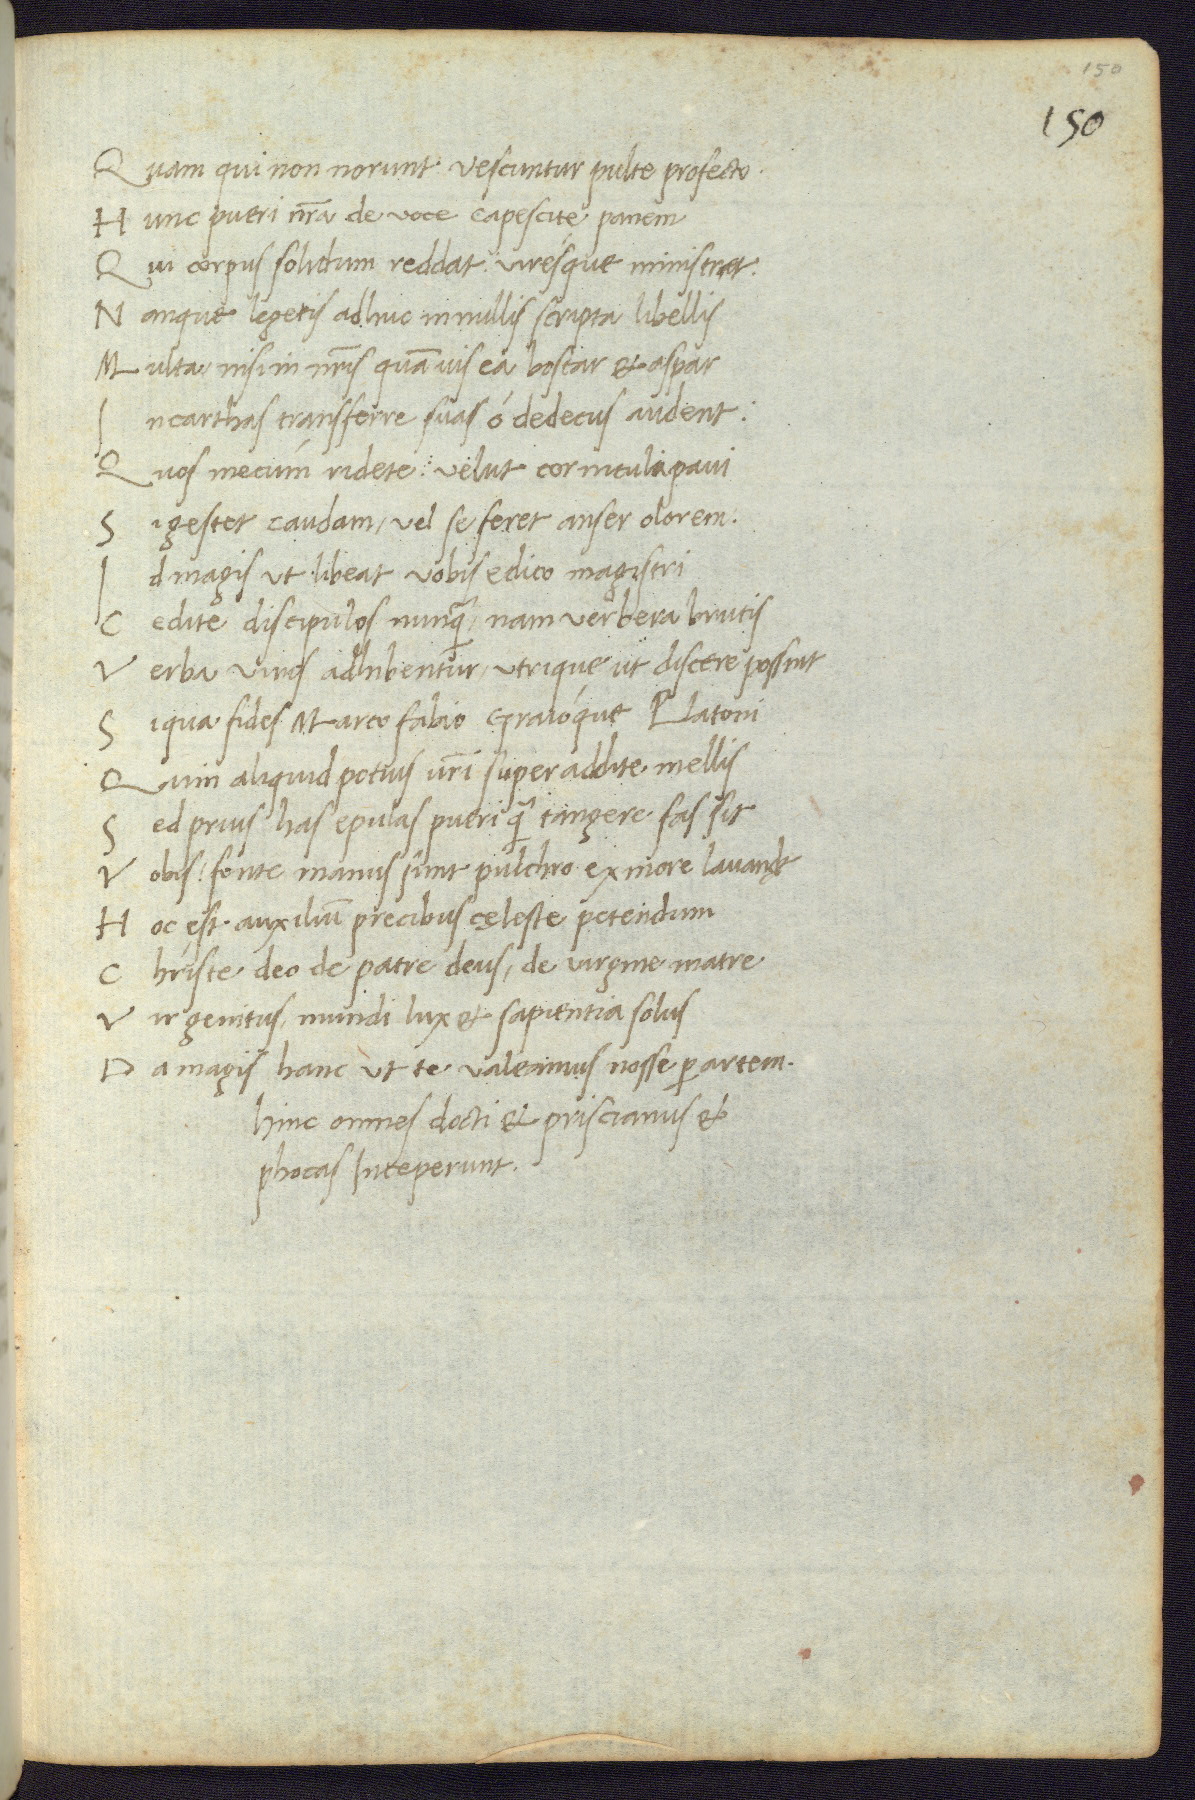 150
150
Quam qui non norunt vescuntur pulte profecto.
Hunc pueri nr̃a de voce capescite panem
Qui corpus solidum reddat: viresque ministret:
Nanque legetis adhuc in nullis scripta libellis
Multa nisi in nr̃is quãuis ea bostar & aspar
In carthas transferre suas ó dedecus audent:
Quos mecum ridete: velut cornicula paui
Si gestet caudam, vel se feret anser olorem.
Id magis ut libeat vobis edico magistri
Cedite discipulos nunq̃, nam verbera brutis
Verba viris adhibentur, utrique ut discere possint
Siqua fides Marco fabio Graióque Platoni
Quin aliquid potius vr̃i superaddite mellis
Sed prius has epulas pueri q̃ tangere fas sit
Vobis: fonte manus sunt pulchro ex more lauandę
Hoc est auxiliũ precibus cęleste petendum
Christe deo de patre deus, de virgine matre
Vir genitus, mundi lux & sapientia solus
Da magis hanc ut te valeamus nosse ꝑ artem.
hinc omnes docti & priscianus &
phocas Inceperunt.